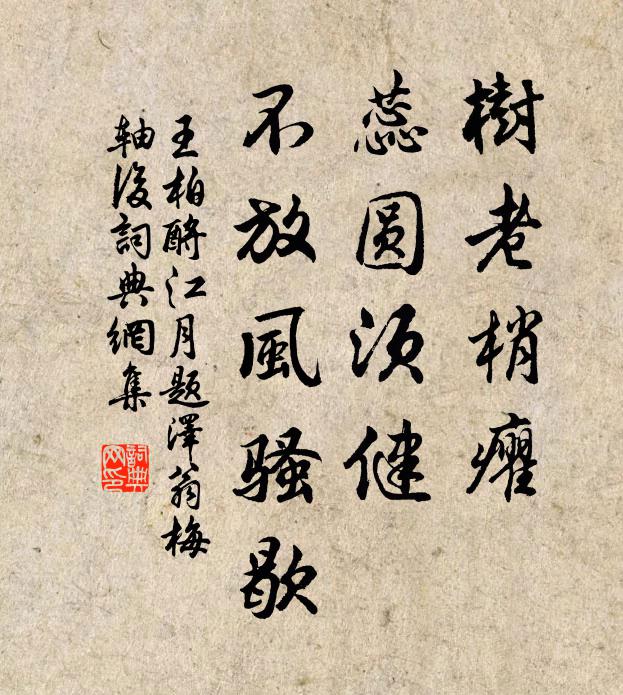 樹老梢癯
蕊圓須健
不放風騷歇
王柏酹江月題澤翁梅
軸後詞典網集
詞典
网印